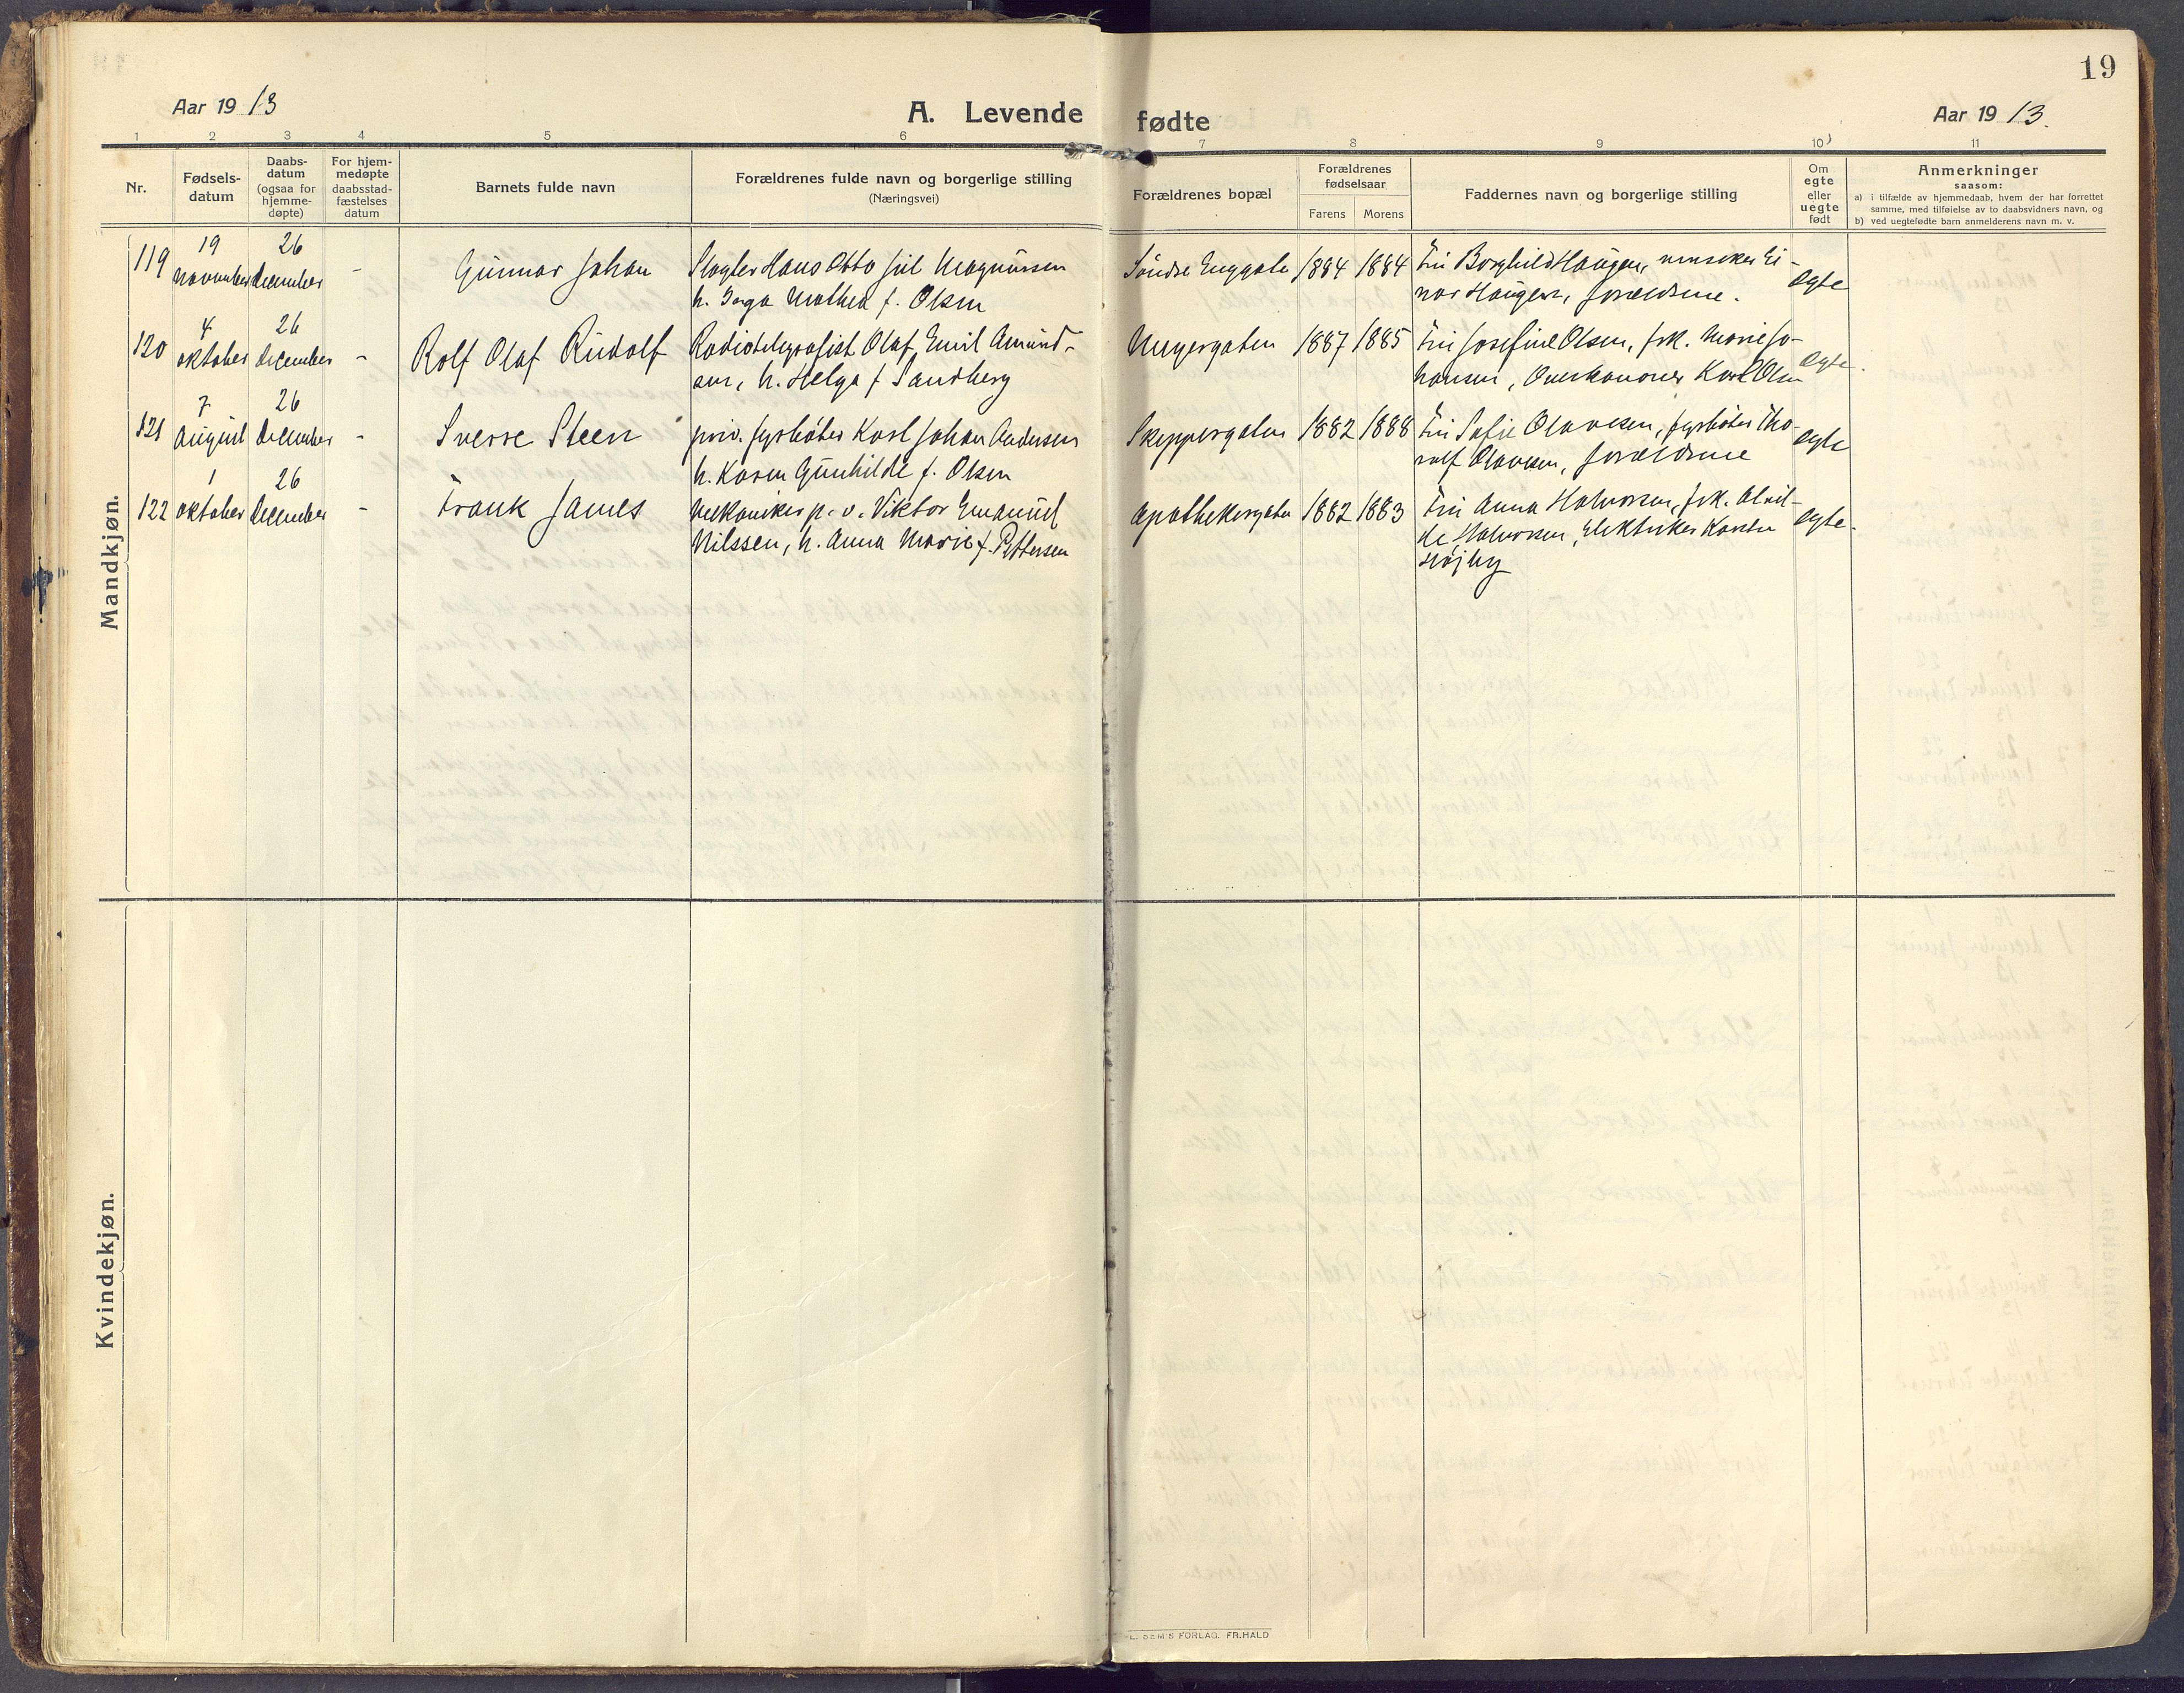 19
Aar 19 13
A. Levende
fødte
Aar 19 13.
1 2 3 4 5 6 7 8 9 10) 11
Nr.
Fødsels-
datum
Daabs-
datum
(ogsaa for
hjemme-
døpte)
For hjem-
medøpte
daabsstad-
fæstelses
datum
Barnets fulde navn
Forældrenes fulde navn og borgerlige stilling
(Næringsvei)
Forældrenes bopæl
Forældrenes
fødselsaar
Farens Morens
Faddernes navn og borgerlige stilling
Om
egte
eller
uegte
født
Anmerkninger
saasom:
a) i tilfælde av hjemmedaab, hvem der har forrettet
samme, med tilføielse av to daabsvidners navn, og
b) ved uegtefødte barn anmelderens navn m. v.
Mandkjøn.
19 26
119 november december - Gunnar Johan Slagter Hans Otto Juil Magnussen Søndre Enggate 1884 1884 Fru Borghild Haugen, Ei- egte
h. Inga Mathea f. Olsen nar Haugen, forældrene.
4 26
120 oktober december - Rolf Olaf Rudolf Radiotelegrafist Olaf Emil Amund- Meyergaten 1887 1885 Fru Josefine Olsen, frk. Marie Jo- egte.
sen, h. Helga f Sandberg hansen, Overkanoner Karl Olsen
7 26
121 august december - Sverre Steen priv. fyrbøter Karl Johan Andersen Skeppergaten 1882 1888 Fru Sofie Olavesen, fyrbøter Tho- egte
h. Karen Gunhilde f. Olsen ralf Olavesen, forældrene
1 26
122 oktober december - Frank James mekaniker p. v. Viktor Emanuel Apothekergaten 1882 1883 Fru Anna Halvorsen, frk. Alvil- egte.
Nilssen, h. Anna Marie f. Pettersen de Halvorsen, Elektriker Karsten
Højby
Kvindekjøn.
SEM'S FORLAG. FR.HALD